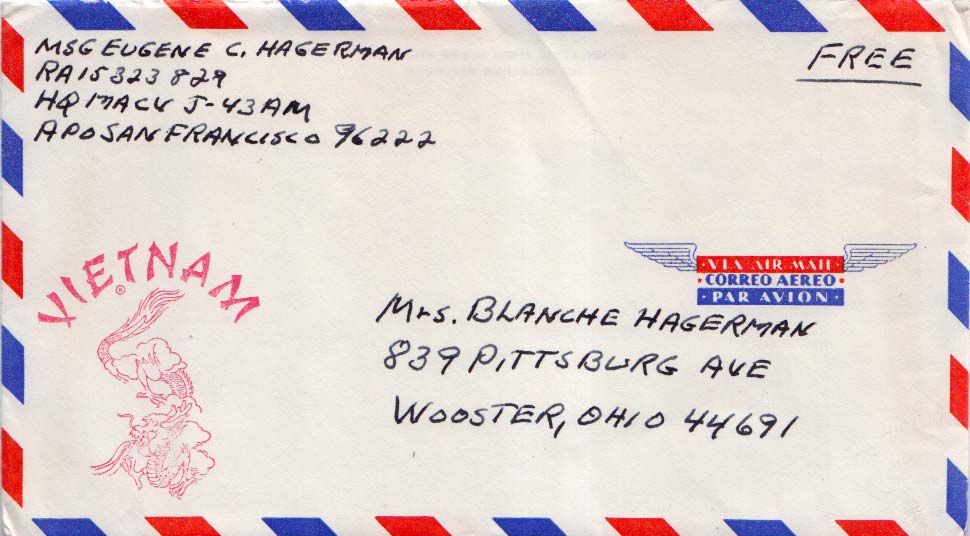 MSG EUGENE C. HAGERMAN
RA15323829
HQ MACV J-43AM
APO SAN FRANCISCO 96222
FREE
VIETNAM
VIA AIR MAIL
CORREO AEREO
PAR AVION
Mrs. BLANCHE HAGERMAN
839 PITTSBURG AVE
WOOSTER, OHIO 44691